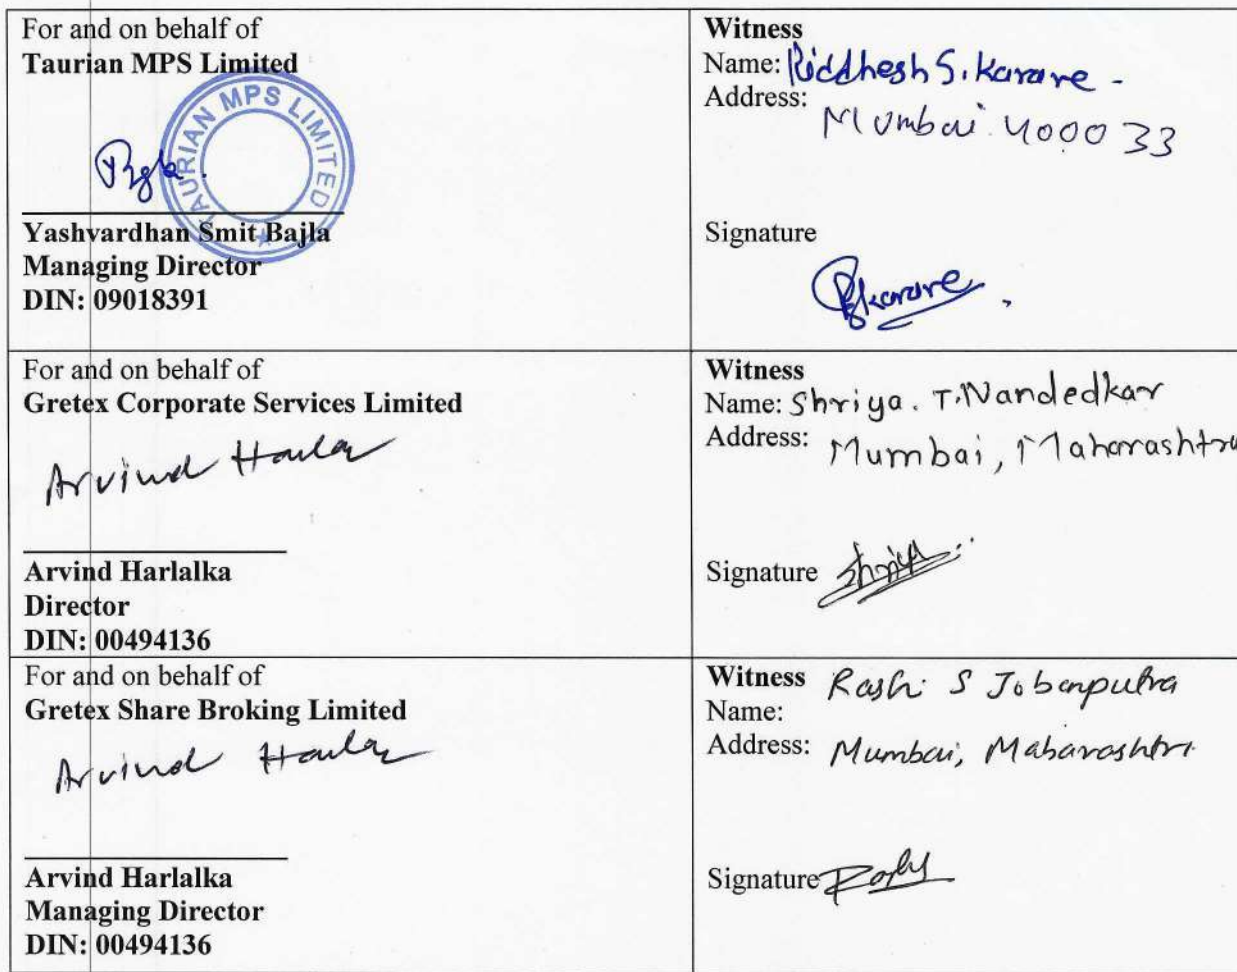 For and on behalf of
Taurian MPS Limited
TAURIAN MPS LIMITED
Yashvardhan Smit Bajla
Managing Director
DIN: 09018391
Witness
Name: Riddhesh S. Karare -
Address:
Mumbai 400033
Signature
For and on behalf of
Gretex Corporate Services Limited
Arvind Harlalka
Director
DIN: 00494136
Witness
Name: Shriya. T. Nandedkar
Address: Mumbai, Maharashtra
Signature Shriya
For and on behalf of
Gretex Share Broking Limited
Arvind Harlalka
Managing Director
DIN: 00494136
Witness Rashi S Jobanputra
Name:
Address: Mumbai, Maharashtra
Signature